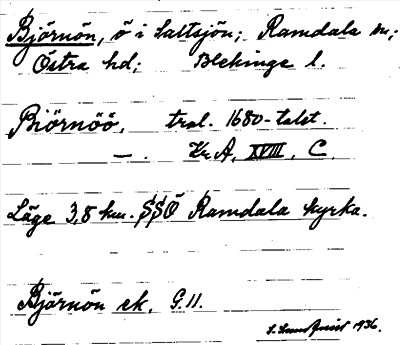 Björnön, ö i Saltsjön; Ramdala sn;
Östra hd; Blekinge l.
Biörnöö, trol. 1680-talet.
— . Kr A, XVIII, C.
Läge 3,8 km. SSÖ Ramdala kyrka.
Björnön ek. G.11.
S. Sundquist 1936.